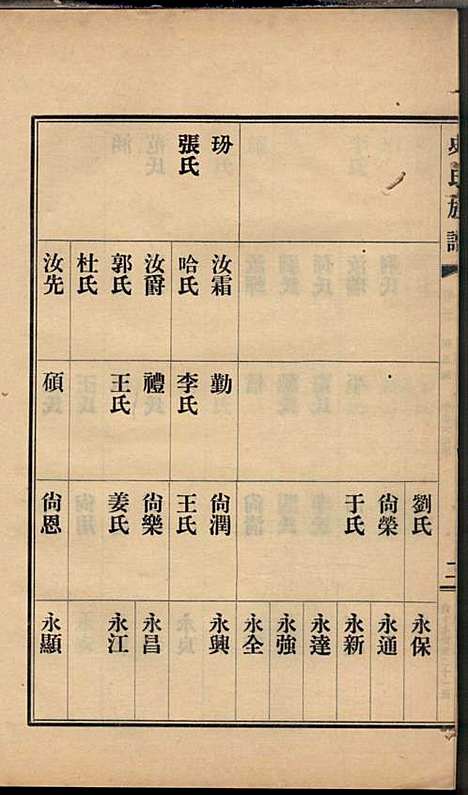 氏族譜
二
玢
張氏
汝霜
哈氏
汝爵
郭氏
杜氏
汝先
勤
李氏
禮
王氏
碩
劉氏
尙榮
于氏
尙潤
王氏
尙樂
姜氏
尙恩
永保
永通
永新
永達
永強
永全
永興
永昌
永江
永顯